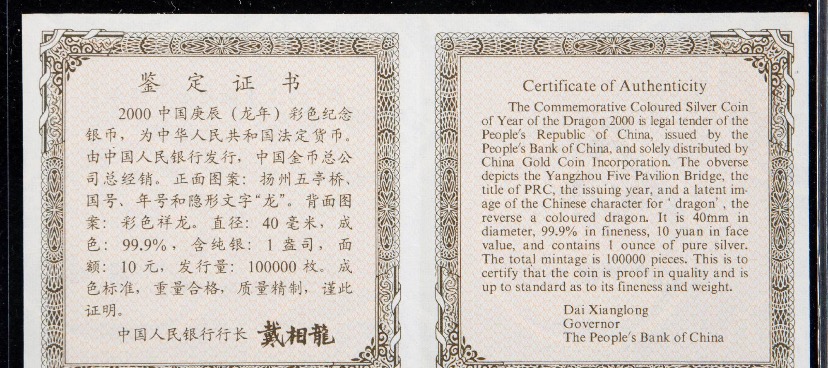 鉴定证书
2000中国庚辰（龙年）彩色纪念
银币，为中华人民共和国法定货币。
由中国人民银行发行，中国金币总公
司总经销。正面图案：扬州五亭桥、
国号、年号和隐形文字“龙”。背面图
案：彩色祥龙。直径：40毫米，成
色：99.9%，含纯银：1盎司，面
额：10元，发行量：100000枚。成
色标准，重量合格，质量精制，谨此
证明。
中国人民银行行长 戴相龍
Certificate of Authenticity
The Commemorative Coloured Silver Coin
of Year of the Dragon 2000 is legal tender of the
People's Republic of China, issued by the
People's Bank of China, and solely distributed by
China Gold Coin Incorporation. The obverse
depicts the Yangzhou Five Pavilion Bridge, the
title of PRC, the issuing year, and a latent im-
age of the Chinese character for ‘dragon’, the
reverse a coloured dragon. It is 40mm in
diameter, 99.9% in fineness, 10 yuan in face
value, and contains 1 ounce of pure silver.
The total mintage is 100000 pieces. This is to
certify that the coin is proof in quality and is
up to standard as to its fineness and weight.
Dai Xianglong
Governor
The People's Bank of China